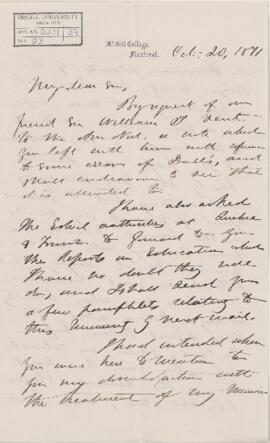 McGILL UNIVERSITY
ARCHIVES
ACC. NO. 2211 37
REF. 23
McGill College,
Montreal.
Oct. 20, 1871
My dear Sir,
By request of our
friend Sir William I sent
to the a note which
you left with him with
to some errors of and
shall endeavour to see that
it is attended to
I have also asked
the School authorities at Quebec
& Toronto to forward to you
the Reports on Education which
I have no doubt they will
do, and I shall send you
a few pamphlets relating to
this University by next mail.
I had intended when
you were here to mention to
you my dissatisfaction with
the treatment of my